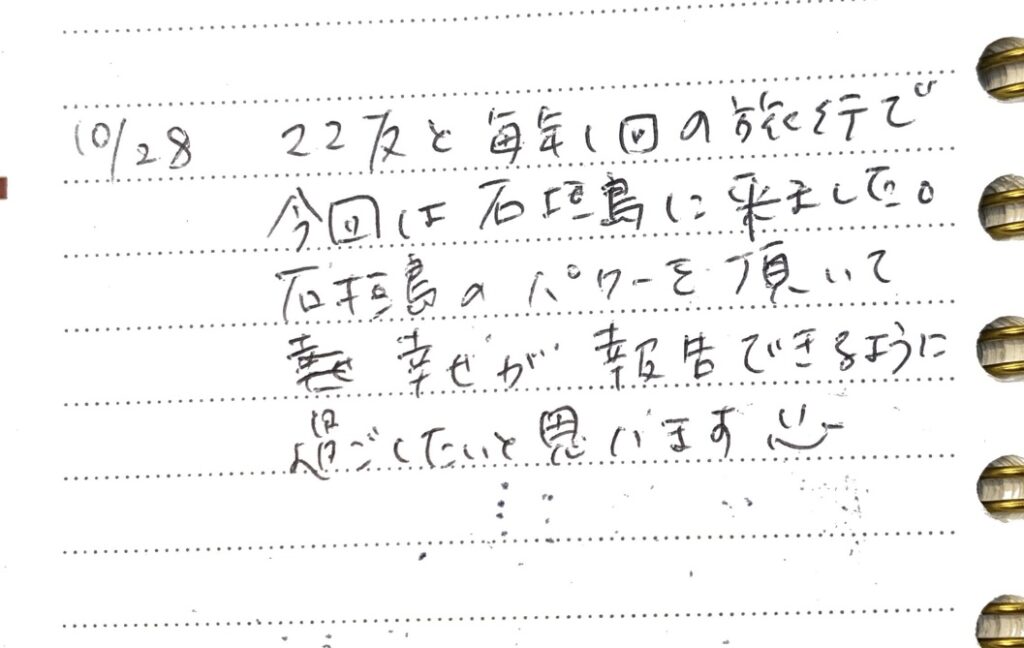 10/28 ママ友と毎年1回の旅行で
今回は石垣島に来ました。
石垣島のパワーを頂いて
幸せが報告できるように
過ごしたいと思います